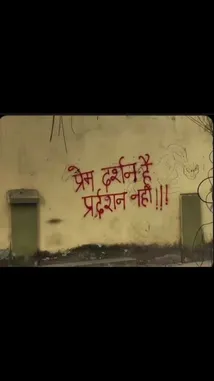 प्रेम दर्शन है
प्रर्दशन नहीं !!!